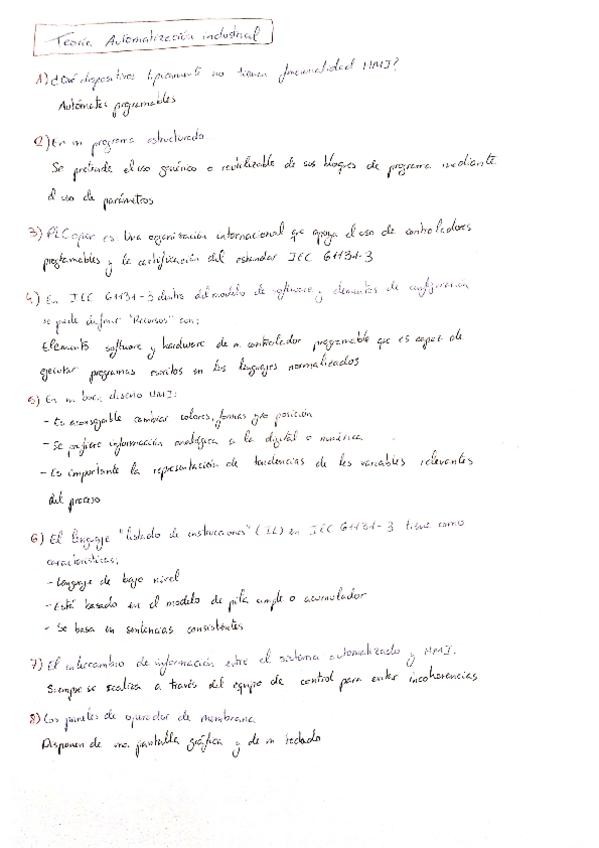 Teoría Automatización industrial
1) ¿Qué dispositivos típicamente no tienen funcionalidad HMI?
Autómatas programables
2) En un programa estructurado
Se pretende el uso genérico o reutilizable de sus bloques de programa mediante
el uso de parámetros
3) PLCopen es una organización internacional que apoya el uso de controladores
programables y la certificación del estandar IEC 61131-3
4) En IEC 61131-3 dentro del modelo de software y elementos de configuración
se puede definir "Recursos" con:
Elemento software y hardware de un controlador programable que es capaz de
ejecutar programas escritos en los lenguajes normalizados
5) En un buen diseño HMI:
- Es aconsejable cambiar colores, formas y/o posición
- Se prefiere información analógica a la digital o numérica
- Es importante la representación de tendencias de las variables relevantes
del proceso
6) El lenguaje "listado de instrucciones" (IL) en IEC 61131-3 tiene como
características:
- Lenguaje de bajo nivel
- Está basado en el modelo de pila simple o acumulador
- Se basa en sentencias consistentes
7) El intercambio de información entre el sistema automatizado y HMI.
Siempre se realiza a través del equipo de control para evitar incoherencias
8) Los paneles de operador de membrana
Disponen de una pantalla gráfica y de un teclado